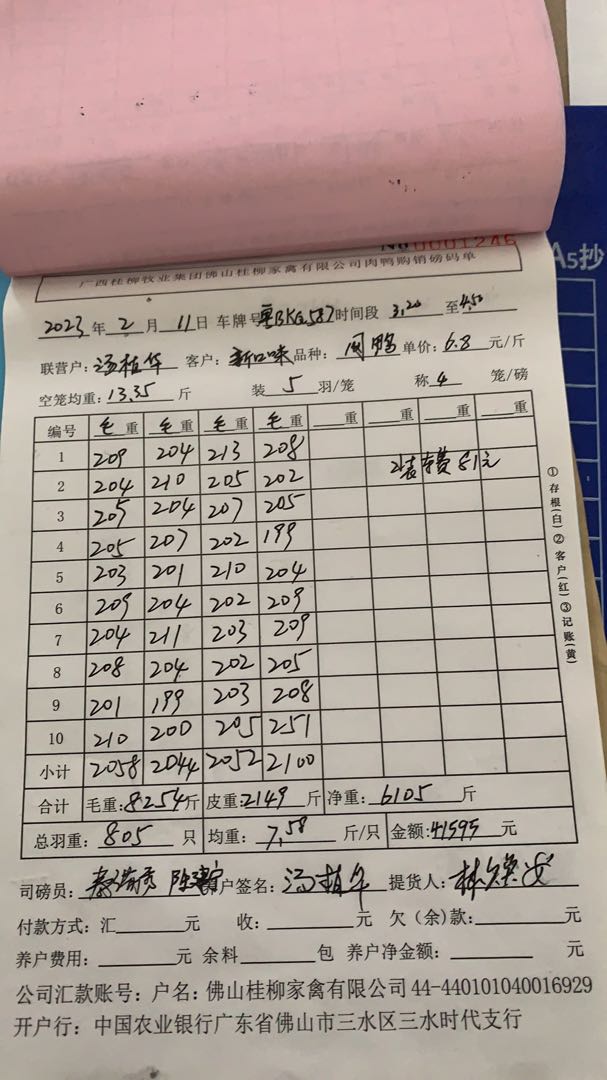 No 0001246
A5抄
广西桂柳牧业集团佛山桂柳家禽有限公司肉鸭购销磅码单
2023年2月11日 车牌号粤BKG587时间段3.20至4.50
联营户：汤植华 客户：新口味 品种：周鸭 单价：6.8元/斤
空笼均重：13.35斤 装5羽/笼 称4笼/磅
编号 毛重 毛重 毛重 毛重 重 重 重 重
1 209 204 213 208
2 204 210 205 202 装车费81元
3 205 204 207 205
4 205 207 202 199
5 203 201 210 204
6 209 204 202 209
7 204 211 203 209
8 208 204 202 205
9 201 199 203 208
10 210 200 205 251
小计 2058 2044 2052 2100
合计 毛重：8254斤 皮重：2149斤 净重：6105斤
总羽重：805只 均重：7.58斤/只 金额：41595元
司磅员： 户签名：汤植华 提货人：
付款方式：汇元 收：元 欠（余）款：元
养户费用：元 余料包 养户净金额：元
公司汇款账号：户名：佛山桂柳家禽有限公司 44-440101040016929
开户行：中国农业银行广东省佛山市三水区三水时代支行
①存根(白)②客户(红)③记账(黄)